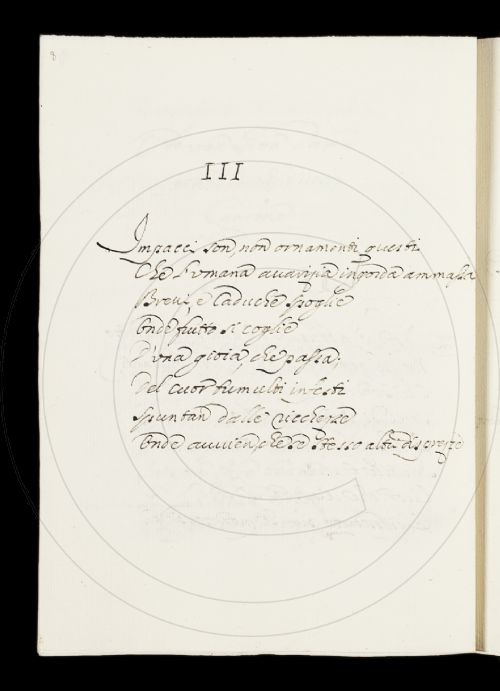 8
III
Impacci son, non ornamenti questi
Che l'umana avarizia ingorda ammassa
Brevi, e caduche spoglie
Onde frutto si coglie
D'una gioia, che passa;
Del cuor tumulti infesti
Spuntan dalle ricchezze
Onde avvien, che se stesso altri disprezze